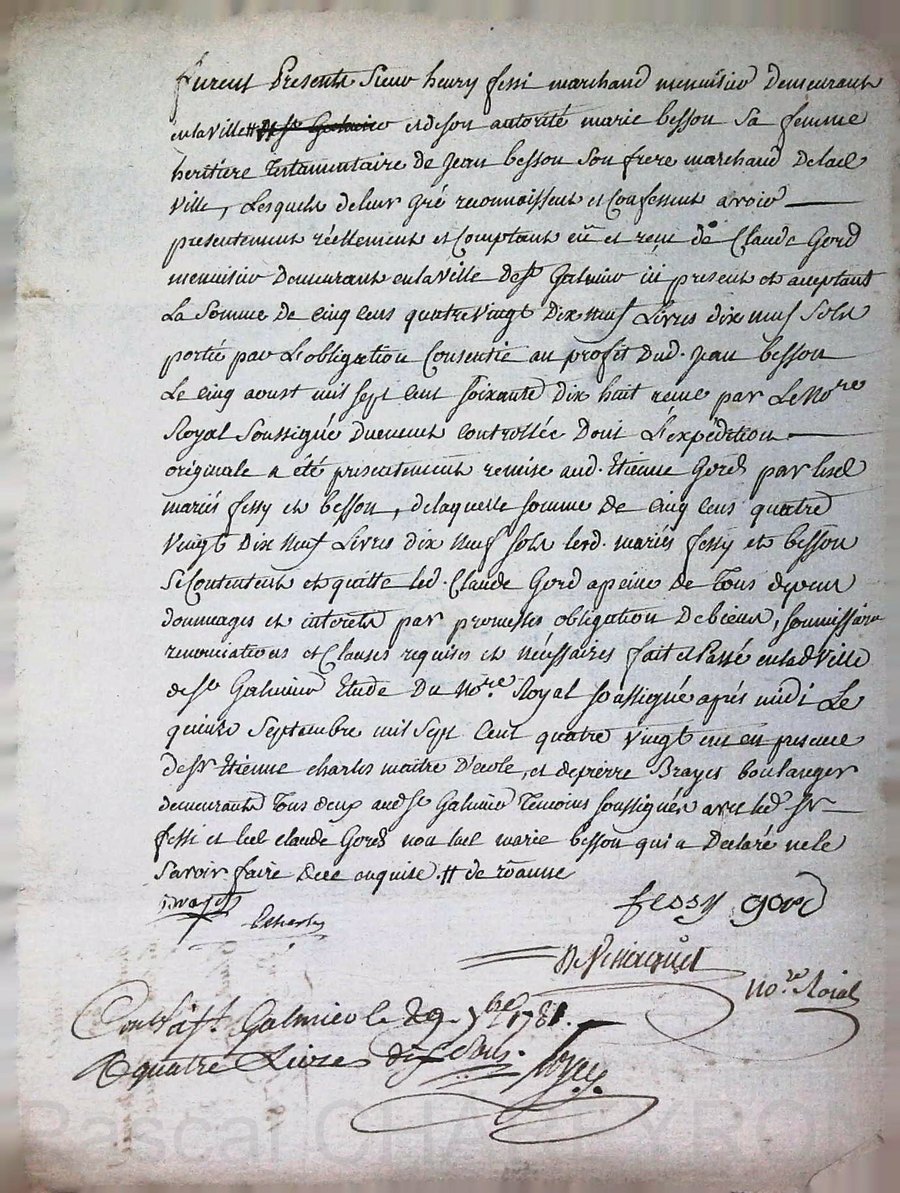 furent Presents Sieur henry fessi marchand menuisier Demeurant
en la ville # de st Galmier et de son autorité marie besson sa femme
heritiere Testamentaire de Jean besson son frere marchand de lad
ville, Lesquels de leur gré reconnoissent et Confessent avoir
presentement réellement et Comptant eü et reçu de Claude Gord
menuisier Demeurant en la ville de st Galmier ici present et acceptant
La somme de cinq cens quatre vingt Dix neuf Livres dix neuf sols
portée par L'obligation Consentie au profit dud. Jean besson
Le cinq aoust mil sept cent soixante Dix huit reçue par Le No.re
Royal Soussigné Duement controllée Dont L'expédition
originale a été presentement remise aud. Etienne Gord par lesd
mariés fessy et besson, de laquelle somme de cinq cens quatre
vingt Dix neuf Livres dix neuf sols lesd. mariés fessy et besson
se Contentent et quitte led. Claude Gord a peine de Tous depens
dommages et interets par promesses obligation De biens, soumissions
renonciations et Clauses requises et nécessaires fait et Passé en lad ville
de st Galmier Etude Du No.re Royal soussigné après midi Le
quinze Septembre mil Sept Cent quatre vingt un en presence
de sr Etienne charles maitre D'ecole, et de pierre Brayet boulanger
demeurants Tous deux aud st Galmier Temoins soussignés avec led. sr
fessi et led claude Gord non lad marie besson qui a Declaré ne le
savoir faire de ce enquise. # de roanne
fessy gord
no.re Roial
Con.lé à st. Galmier le 29 7bre 1781.
R quatre Livres dix sols.
Pascal CHAPEYRON